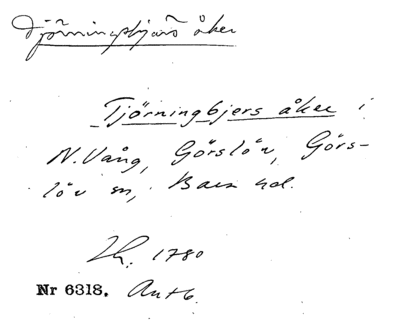 Tjörningbjers åker
Tjörningbjers åker i
N. Vång, Görslöv, Görs-
löv sn, Bara hd.
Lh. 1780
Nr 6318. Ant 6.